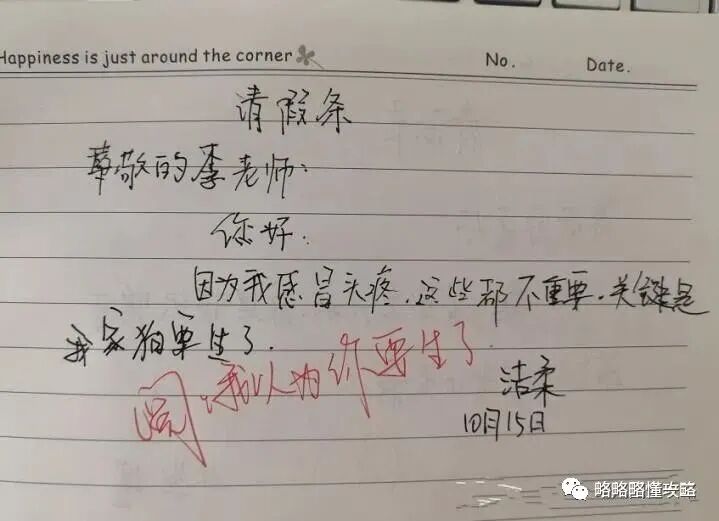 Happiness is just around the corner No. Date.
请假条
尊敬的李老师:
您好:
因为我感冒头疼.这些都不重要.关键是
我家狗要生了.
阅,我以为你要生了
洁柔
10月15日
略略略懂攻略